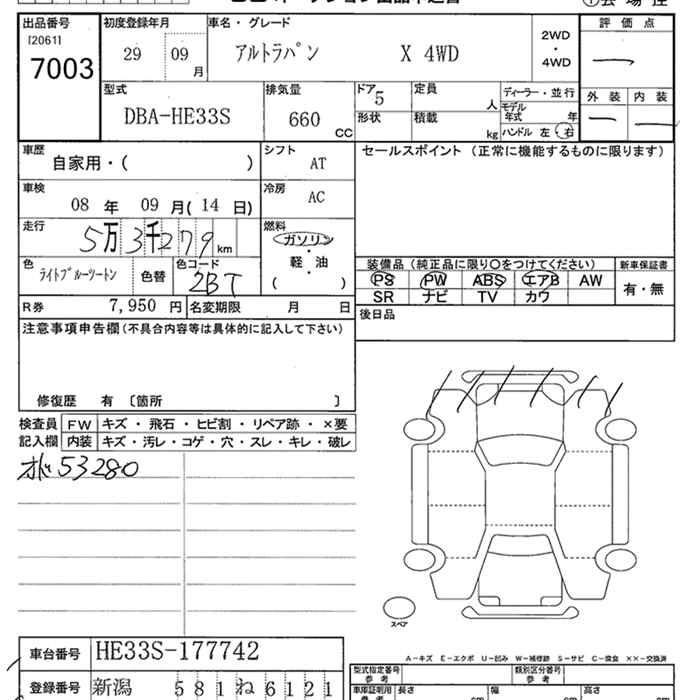 出品番号 初度登録年月 車名・グレード 評 価 点
[2061] 29 09 アルトラパン X 4WD 2WD
7003 月 ・
4WD
型式 排気量 ドア 定員 ディーラー・並行 外 装 内 装
DBA-HE33S 660 5 人 モデル
年式 年
CC 形状 積載 kg ハンドル 左・右
車歴 シフト セールスポイント (正常に機能するものに限ります)
自家用・( ) AT
車検 冷房
08 年 09 月( 14 日) AC
走行 燃料
5万3千279 km ガソリン
・
軽・油
( )
色 色替 色コード 装備品 (純正品に限り○をつけてください) 新車保証書
ライトブルーツートン 2BT PS PW ABS エアB AW 有・無
SR ナビ TV カワ
R券 7,950 円 名変期限 月 日 後日品
注意事項申告欄(不具合内容等は具体的に記入して下さい)
修復歴 有 〔箇所 〕
検査員 FW キズ ・ 飛石 ・ ヒビ割 ・ リペア跡 ・ ×要
記入欄 内装 キズ・汚レ・コゲ・穴・スレ・キレ・破レ
53280
スペア
車台番号 HE33S-177742
A-キズ E-エクボ U-凹み W-補修跡 S-サビ C-腐食 ××-交換済
登録番号 新潟 581 ね 6121
型式指定番号
参考 類別区分番号
参考
車庫証明用 長さ 幅 高さ